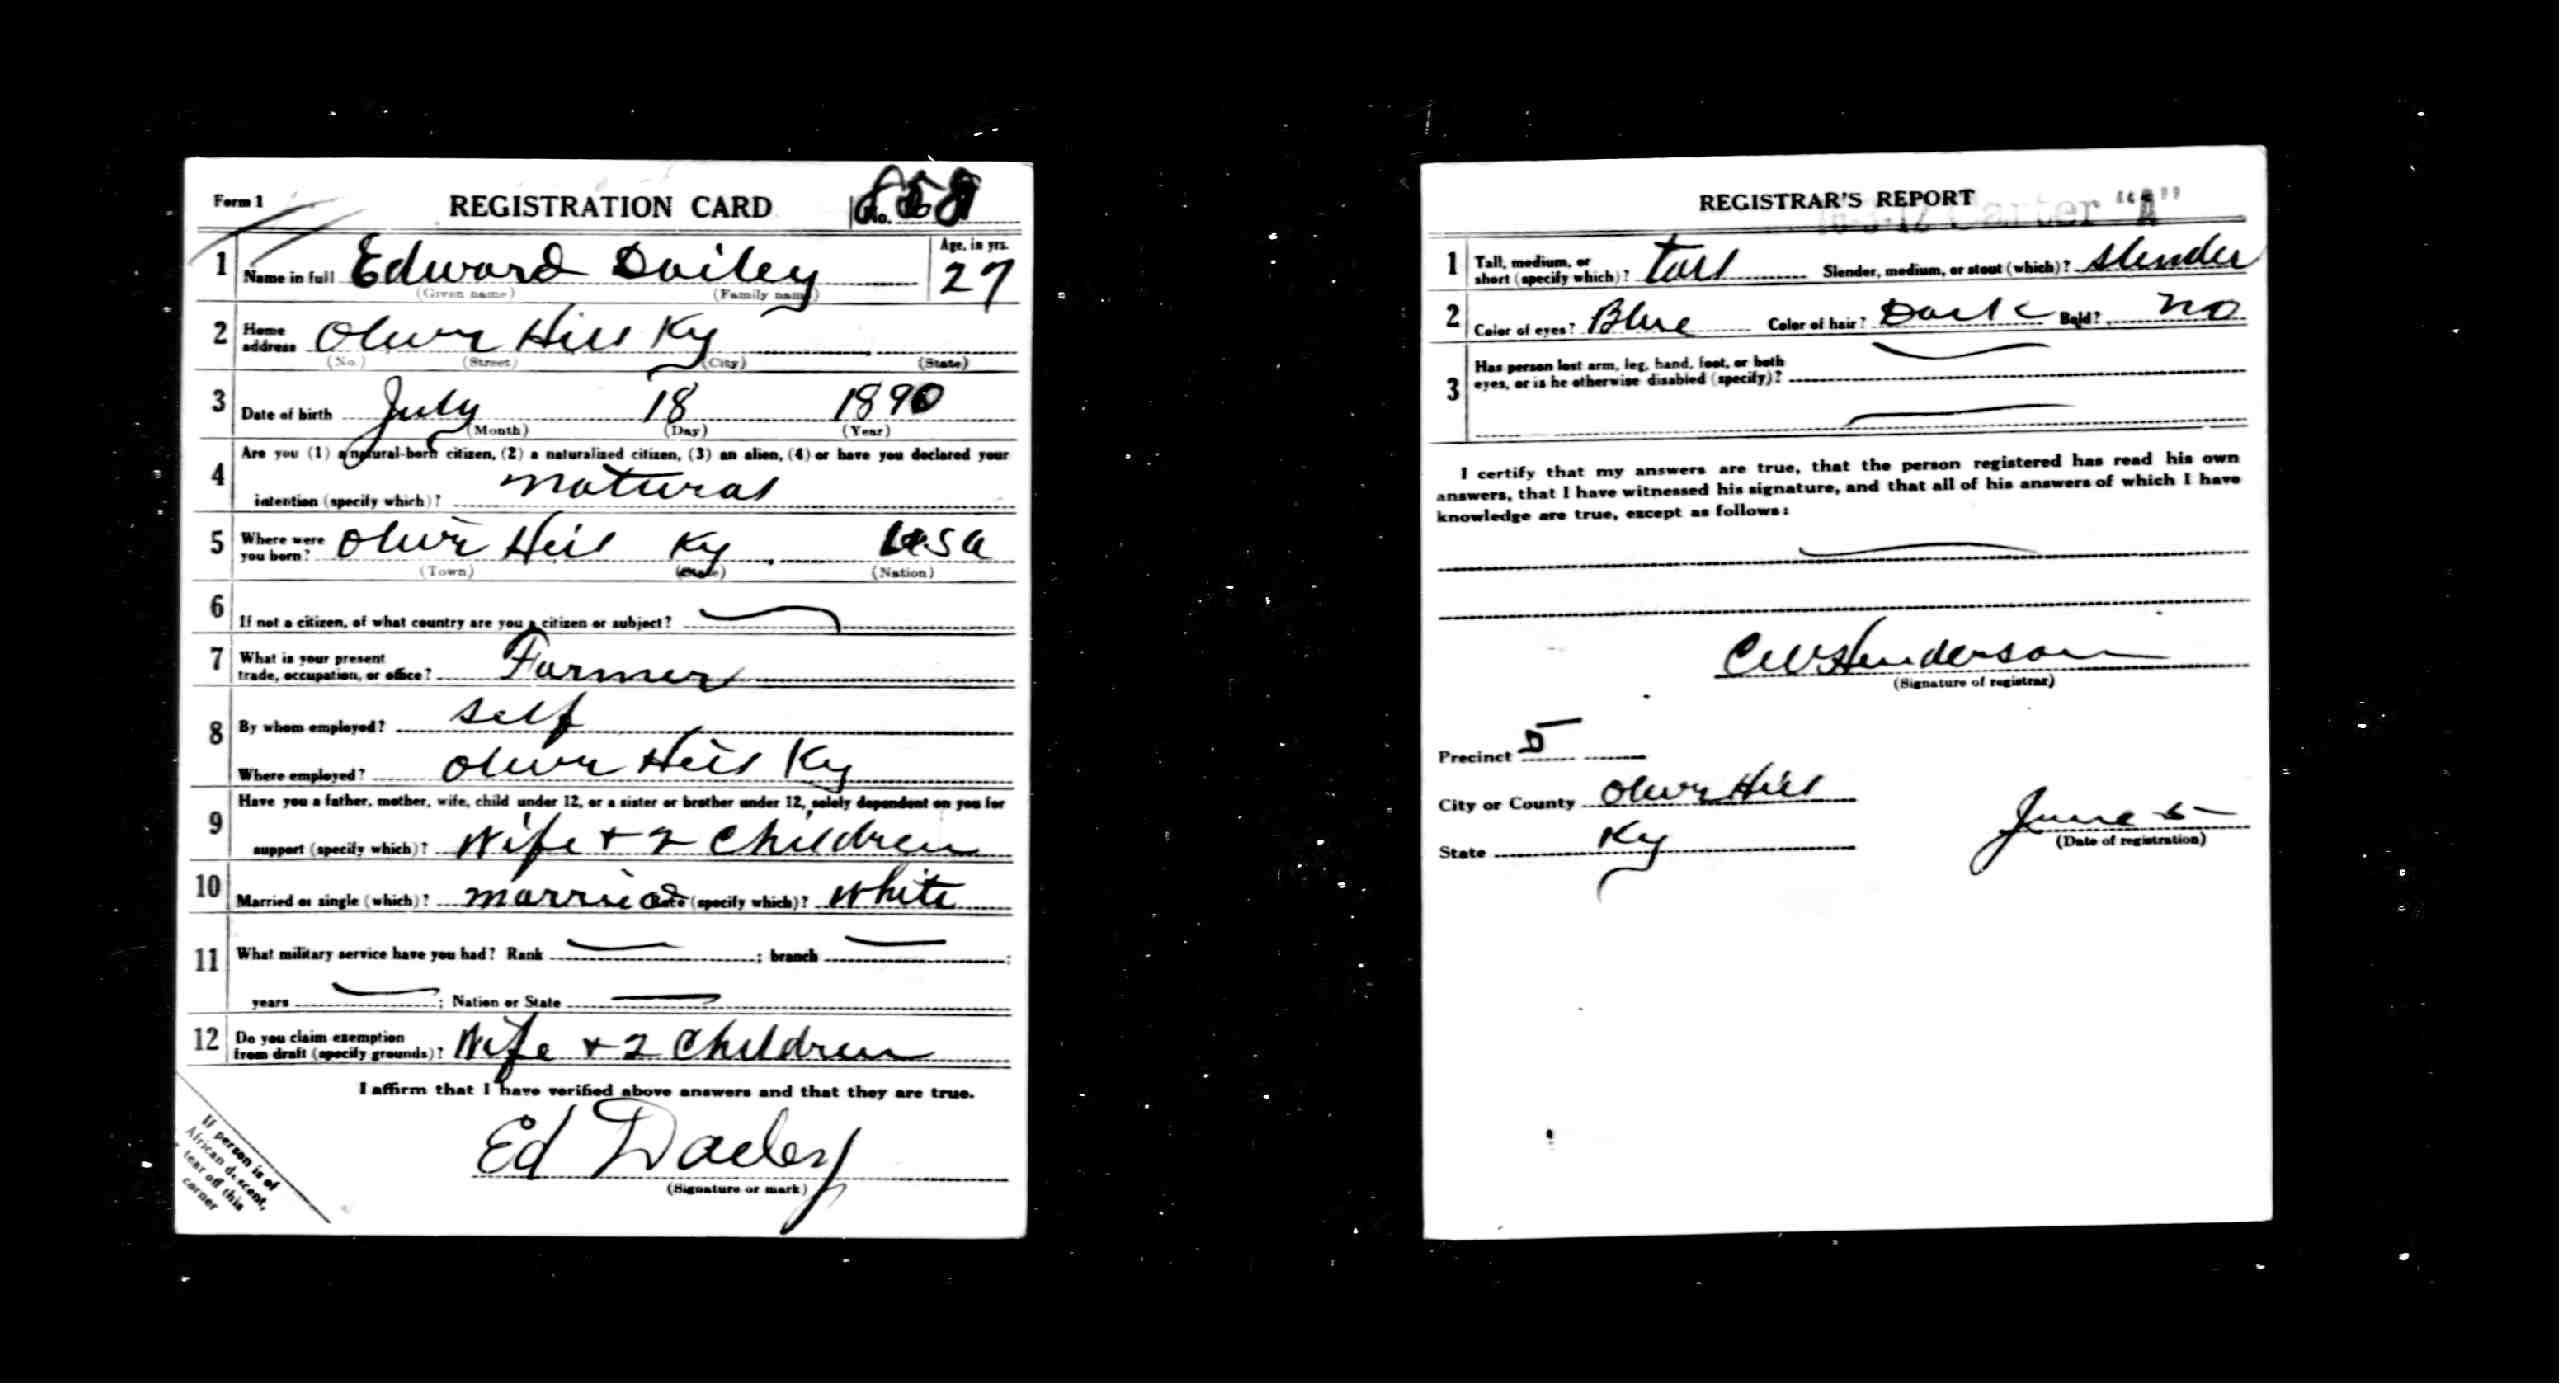 Form 1 REGISTRATION CARD No.
1 Name in full Edward Dailey Age, in yrs. 27
(Given name) (Family name)
2 Home address Olive Hill Ky
(No.) (Street) (City) (State)
3 Date of birth July 18 1890
(Month) (Day) (Year)
4 Are you (1) a natural-born citizen, (2) a naturalized citizen, (3) an alien, (4) or have you declared your
intention (specify which)? natural
5 Where were you born? Olive Hill Ky USA
(Town) (State) (Nation)
6 If not a citizen, of what country are you a citizen or subject?
7 What is your present trade, occupation, or office? Farmer
8 By whom employed? self
Where employed? Olive Hill Ky
9 Have you a father, mother, wife, child under 12, or a sister or brother under 12, solely dependent on you for
support (specify which)? Wife + 2 Children
10 Married or single (which)? married Race (specify which)? White
11 What military service have you had? Rank ; branch ;
years ; Nation or State
12 Do you claim exemption from draft (specify grounds)? Wife + 2 Children
I affirm that I have verified above answers and that they are true.
Ed Dailey
(Signature or mark)
If person is of
African descent,
tear off this
corner
REGISTRAR'S REPORT
Carter "A"
1 Tall, medium, or short (specify which)? Tall Slender, medium, or stout (which)? slender
2 Color of eyes? Blue Color of hair? Dark Bald? no
3 Has person lost arm, leg, hand, foot, or both
eyes, or is he otherwise disabled (specify)?
I certify that my answers are true, that the person registered has read his own
answers, that I have witnessed his signature, and that all of his answers of which I have
knowledge are true, except as follows:
CW Henderson
(Signature of registrar)
Precinct 5
City or County Olive Hill
State Ky
June 5
(Date of registration)